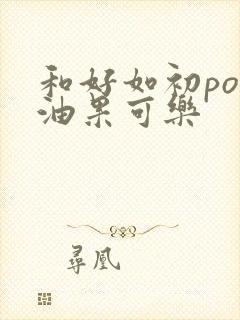 和好如初po
油果可樂
尋凰